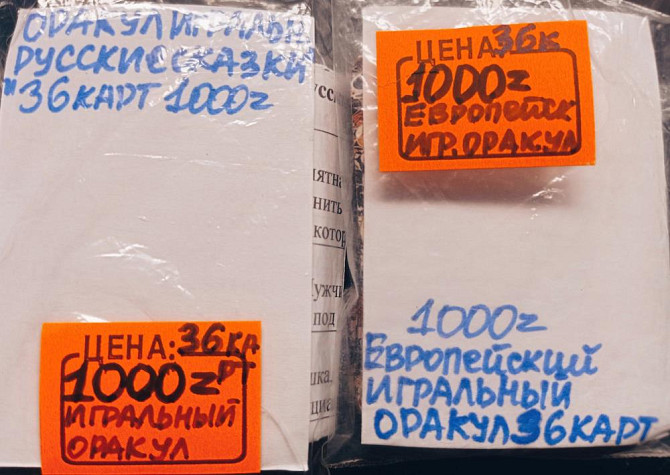 ОРАКУЛ ИГРАЛЬН
РУССКИЕ СКАЗКИ
"36 КАРТ 1000г
ЦЕНА: 36 КА
РТ
1000г
ИГРАЛЬНЫЙ
ОРАКУЛ
нить
котор
под
ЦЕНА 36К
1000г
ЕВРОПЕЙСК
ИГР. ОРАКУЛ
1000г
ЕВРОПЕЙСКИЙ
ИГРАЛЬНЫЙ
ОРАКУЛ 36 КАРТ